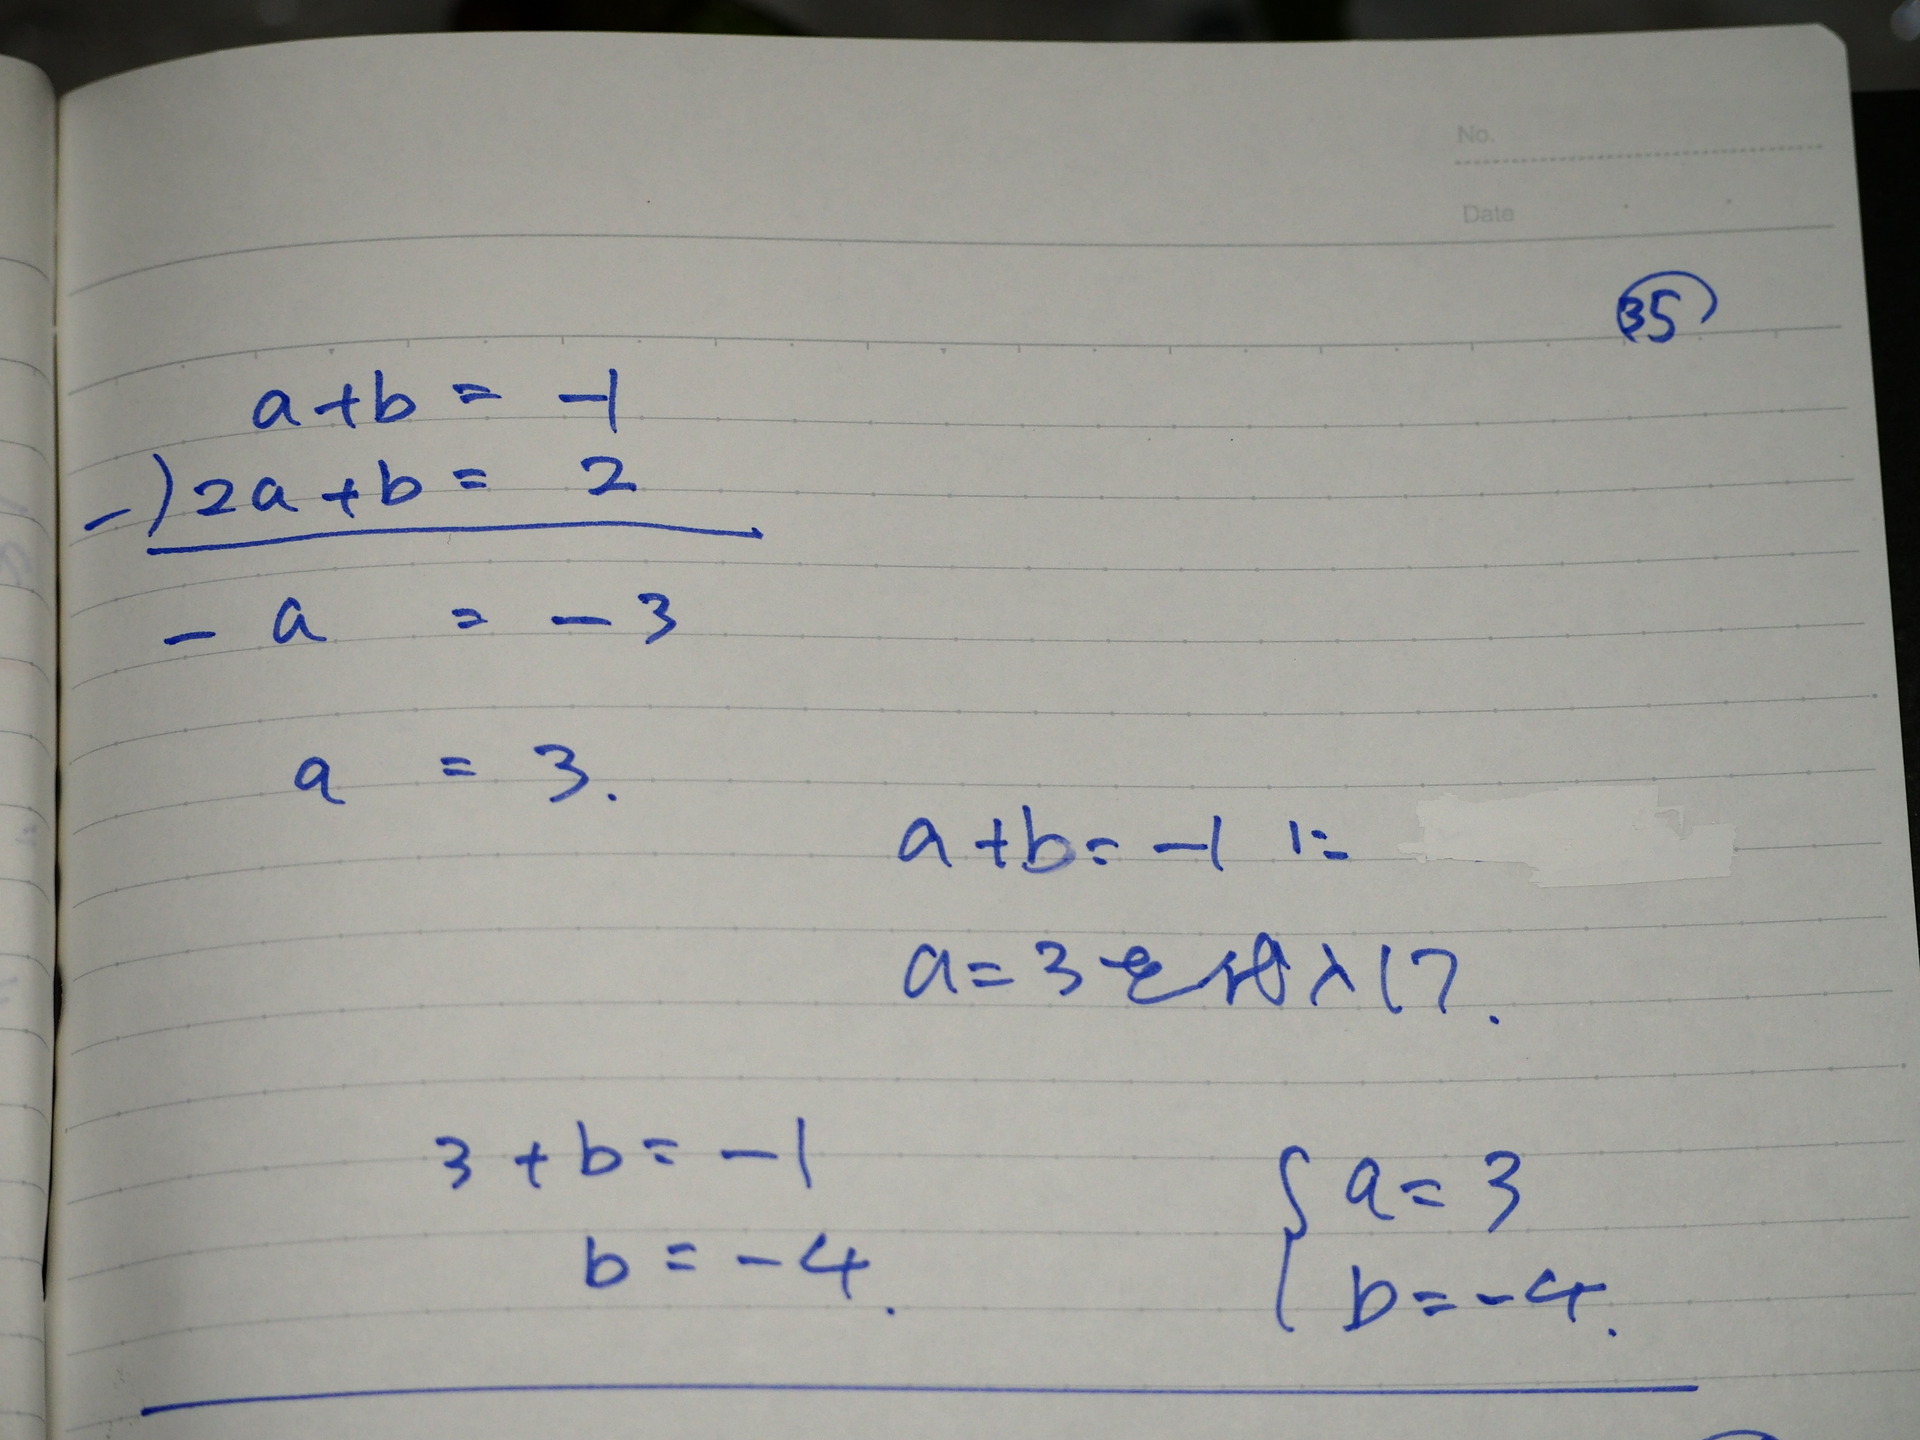 No.
Date
35
a+b = -1
-) 2a+b = 2
- a = - 3
a = 3.
a+b = -1 に
a=3を代入して.
3+b = -1
b = -4.
{ a = 3
b = -4.